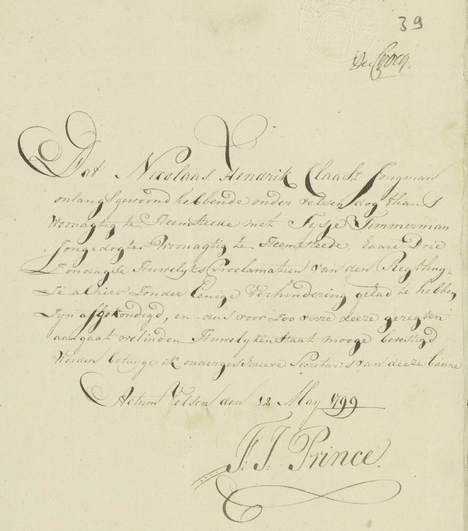 39
Dat Nicolaas Hendrik Claasz. Jongman
onlangs gewoond hebbende onder Velsen dog thans
Woonagtig te Heemsteede met Tytje Timmerman
Jongedogter Woonagtig te Heemsteede haare Drie
Zondagse Huwelyks Proclamatien van den Regthuy-
ze alhier Zonder Eenige Verhindering gehad te hebben
Zyn afgekondigd, en dus voor zoo verre deeze geregten
aangaat in den Huwelyken Staat mooge bevestigd
Worden betuyge ik ondergeschreeve Secretaris van deeze banne
Actum Velsen den 12 May 1799
F. J. Prince.